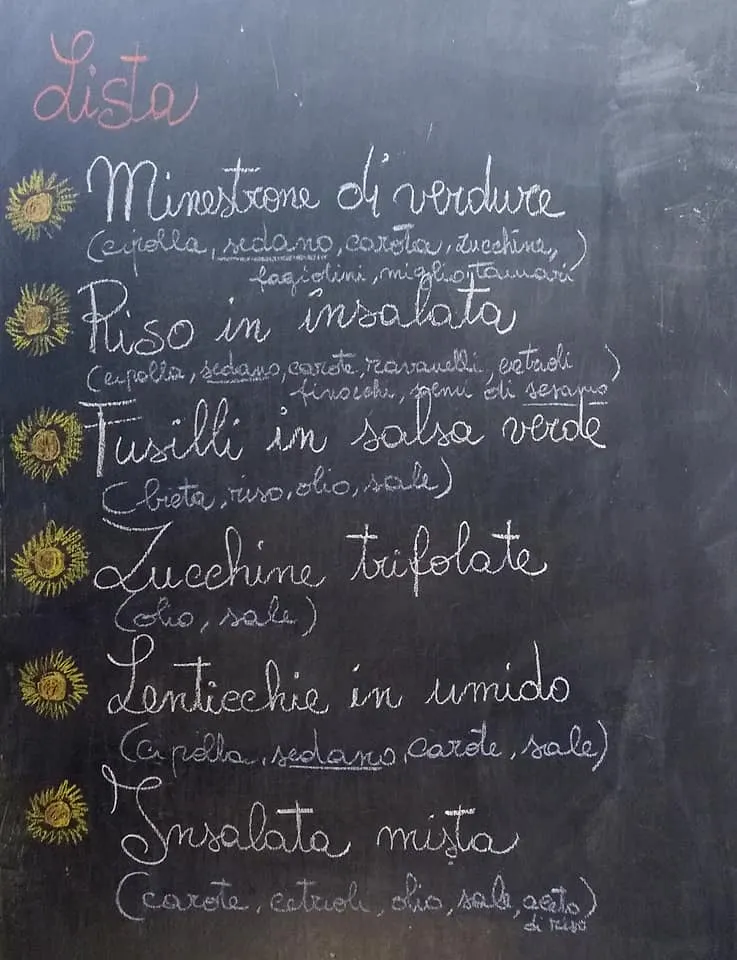 Lista
Minestrone di verdure
(cipolla, sedano, carota, zucchine,)
fagiolini, miglio, tamari
Riso in insalata
(cipolla, sedano, carote, ravanelli, cetrioli)
finocchi, semi di sesamo
Fusilli in salsa verde
(bieta, riso, olio, sale)
Zucchine trifolate
(olio, sale)
Lenticchie in umido
(cipolla, sedano, carote, sale)
Insalata mista
(carote, cetrioli, olio, sale, aceto)
di riso